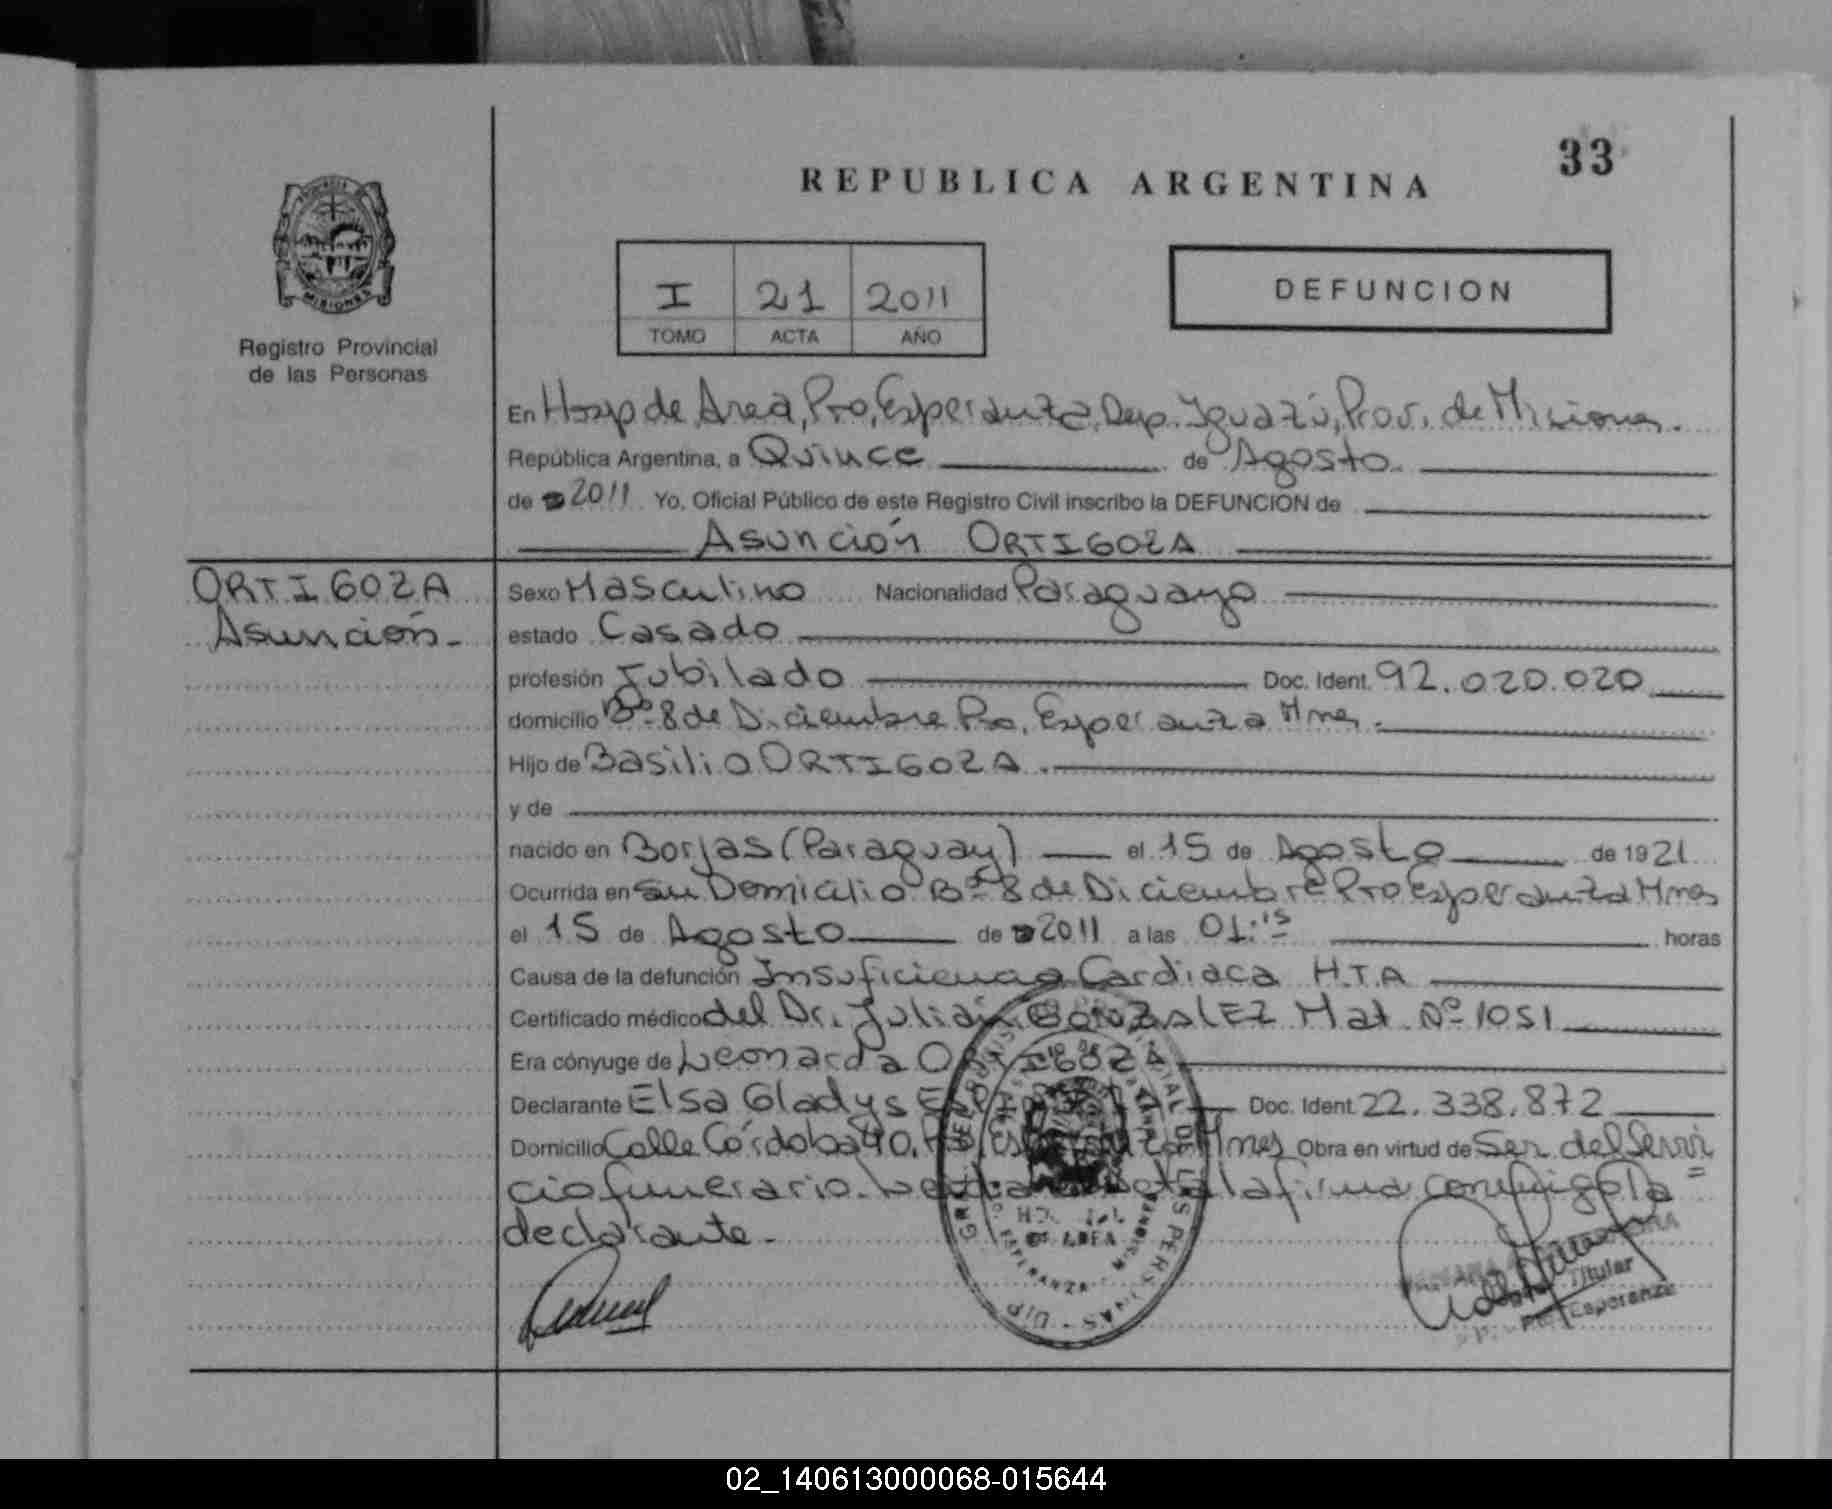 33
REPUBLICA ARGENTINA
PROVINCIA
MISIONES
Registro Provincial
de las Personas
I 21 2011
TOMO ACTA AÑO
DEFUNCION
En Hosp de Area, Pto, Esperanza, Dep. Iguazú, Prov. de Misiones.
República Argentina, a Quince de Agosto.
de 2011 Yo, Oficial Público de este Registro Civil inscribo la DEFUNCION de
Asunción ORTIGOZA
ORTIGOZA
Asunción.-
Sexo Masculino Nacionalidad Paraguayo
estado Casado
profesión Jubilado Doc. Ident. 92.020.020
domicilio Bº-8 de Diciembre Pto. Esperanza Mnes.
Hijo de Basilio ORTIGOZA.
y de
nacido en Borjas (Paraguay) el 15 de Agosto de 1921
Ocurrida en su Domicilio Bº-8 de Diciembre Pto Esperanza Mnes
el 15 de Agosto de 2011 a las 01:15 horas
Causa de la defunción Insuficiencia Cardiaca H.T.A
Certificado médico del Dr. Julián GonzalEZ Mat Nº 1051
Era cónyuge de Leonarda ORTIGOZA
Declarante Elsa Gladys Doc. Ident. 22.338.872
Domicilio Calle Córdoba 40. Pto. Esperanza Mnes Obra en virtud de Ser del Servi=
cio funerario. Leida el acta la firma conmigo la
declarante.-
HOSPITAL
DE AREA
ESPERANZA - MISIONES
Titular
Pto. Esperanza
02_140613000068-015644